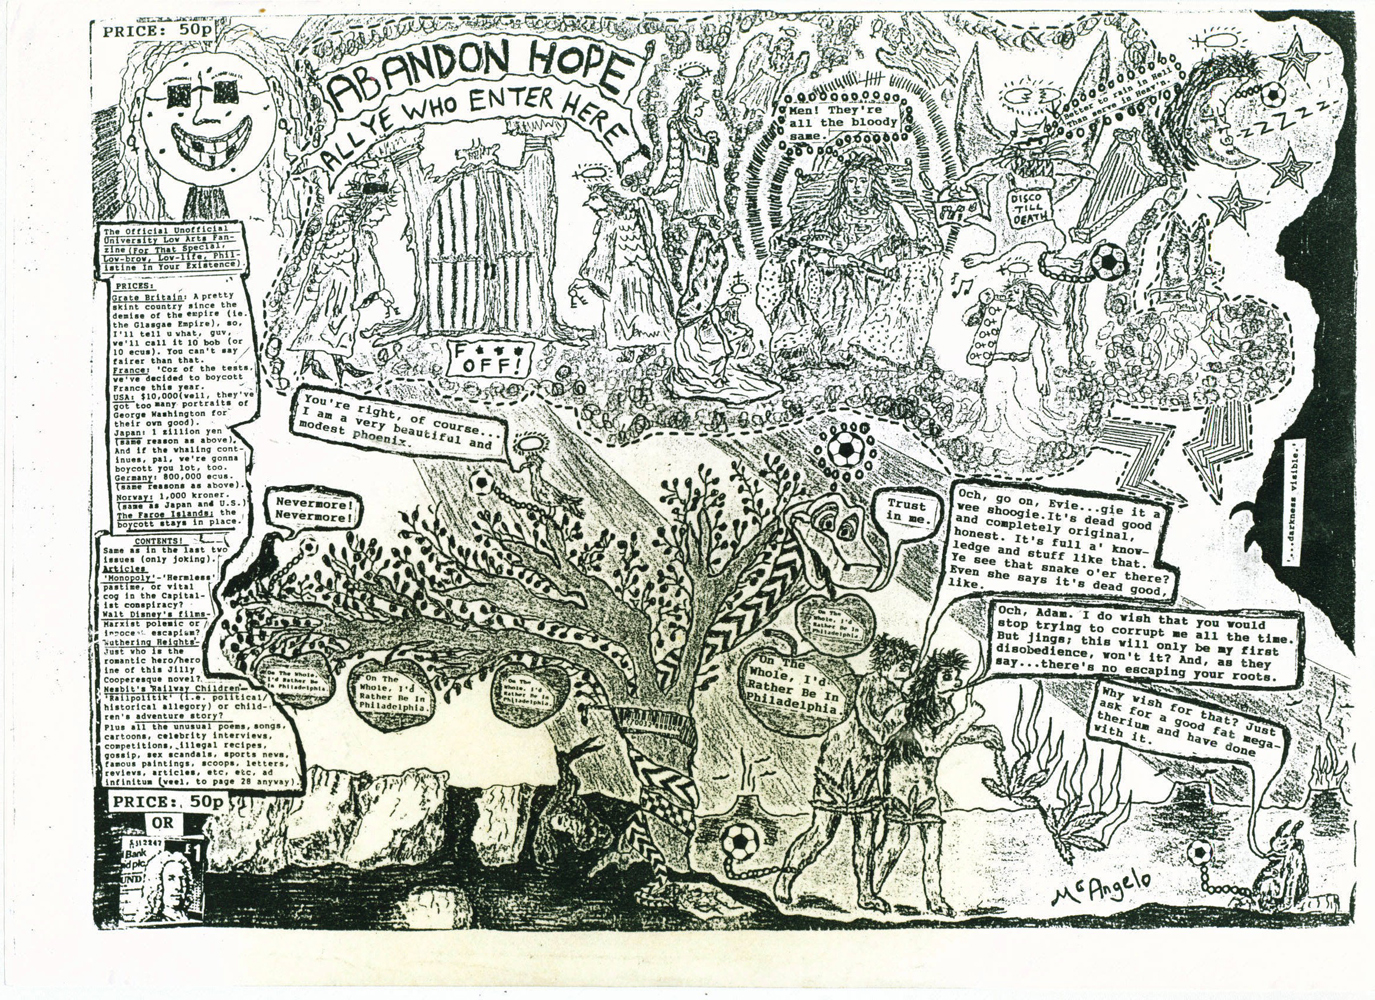 PRICE: 50p
ABANDON HOPE
ALL YE WHO ENTER HERE
F****
OFF!
Men! They're
all the bloody
same.
Better to rain in Hell
than serve in Heaven.
DISCO
TILL
DEATH
zZZZZZ
The Official Unofficial
University Low Arts Fan-
zine(For That Special,
Low-brow, Low-life, Phil-
istine In Your Existence)
PRICES:
Grate Britain: A pretty
skint country since the
demise of the empire (ie.
the Glasgae Empire), so,
I'll tell u what, guv,
we'll call it 10 bob (or
10 ecus). You can't say
fairer than that.
France: 'Coz of the tests,
we've decided to boycott
France this year.
USA: $10,000(well, they've
got too many portraits of
George Washington for
their own good).
Japan: 1 zillion yen
(same reason as above).
And if the whaling cont-
inues, pal, we're gonna
boycott you lot, too.
Germany: 800,000 ecus.
(same reasons as above).
Norway: 1,000 kroner.
(same as Japan and U.S.)
The Faroe Islands: the
boycott stays in place.
CONTENTS!
Same as in the last two
issues (only joking).
Articles
'Monopoly'-'Hermless'
pastime, or vital
cog in the Capital-
ist conspiracy?
Walt Disney's films-
Marxist polemic or
innocent escapism?
Wuthering Heights-
Just who is the
romantic hero/hero
ine of this Jilly
Cooperesque novel?
Nesbit's Railway Children-
'Railpolitik' (i.e. political/
historical allegory) or child-
ren's adventure story?
Plus all the unusual poems, songs,
cartoons, celebrity interviews,
competitions, illegal recipes,
gossip, sex scandals, sports news,
famous paintings, scoops, letters,
reviews, articles, etc, etc, ad
infinitum (weel, to page 28 anyway)
PRICE: 50p
OR
Bank
£1
You're right, of course...
I am a very beautiful and
modest phoenix.
Nevermore!
Nevermore!
Trust
in me.
Och, go on, Evie...gie it a
wee shoogie.It's dead good
and completely original,
honest. It's full a' know-
ledge and stuff like that.
Ye see that snake o'er there?
Even she says it's dead good,
like.
Och, Adam. I do wish that you would
stop trying to corrupt me all the time.
But jings; this will only be my first
disobedience, won't it? And, as they
say...there's no escaping your roots.
Why wish for that? Just
ask for a good fat mega-
therium and have done
with it.
"...darkness visible."
On The
Whole, I'd
Rather Be In
Philadelphia.
On The
Whole, I'd
Rather Be In
Philadelphia.
On The
Whole, I'd
Rather Be In
Philadelphia.
On The
Whole, I'd
Rather Be In
Philadelphia.
On The
Whole, I'd
Rather Be In
Philadelphia.
McAngelo